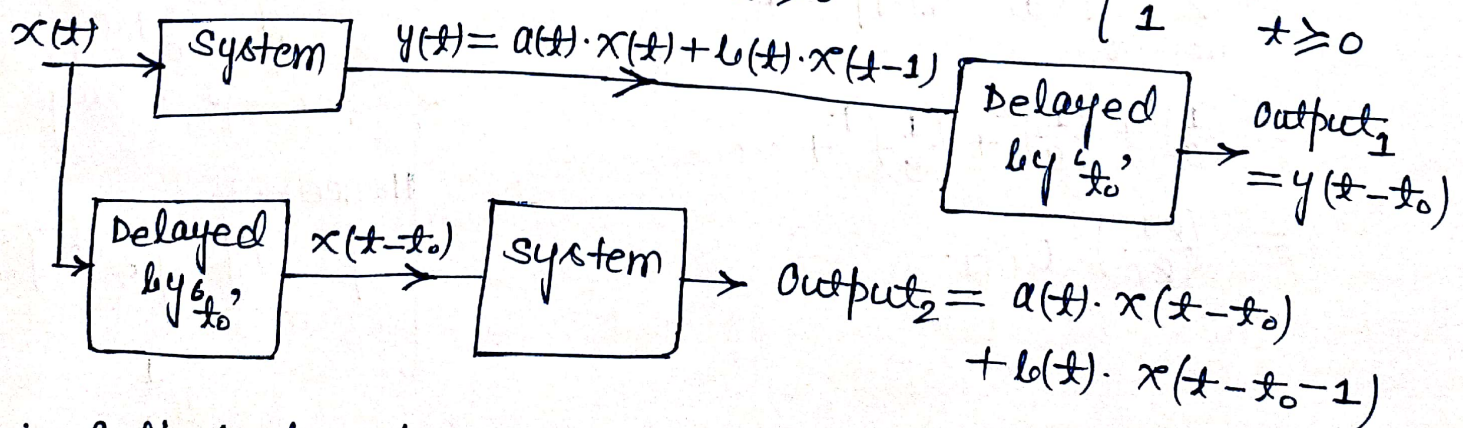 { 1 t ≥ 0
x(t)
System
y(t) = a(t)·x(t) + b(t)·x(t-1)
Delayed
by 't₀'
Output₁
= y(t-t₀)
Delayed
by 't₀'
x(t-t₀)
System
Output₂ = a(t)· x(t-t₀)
+ b(t)· x(t-t₀-1)